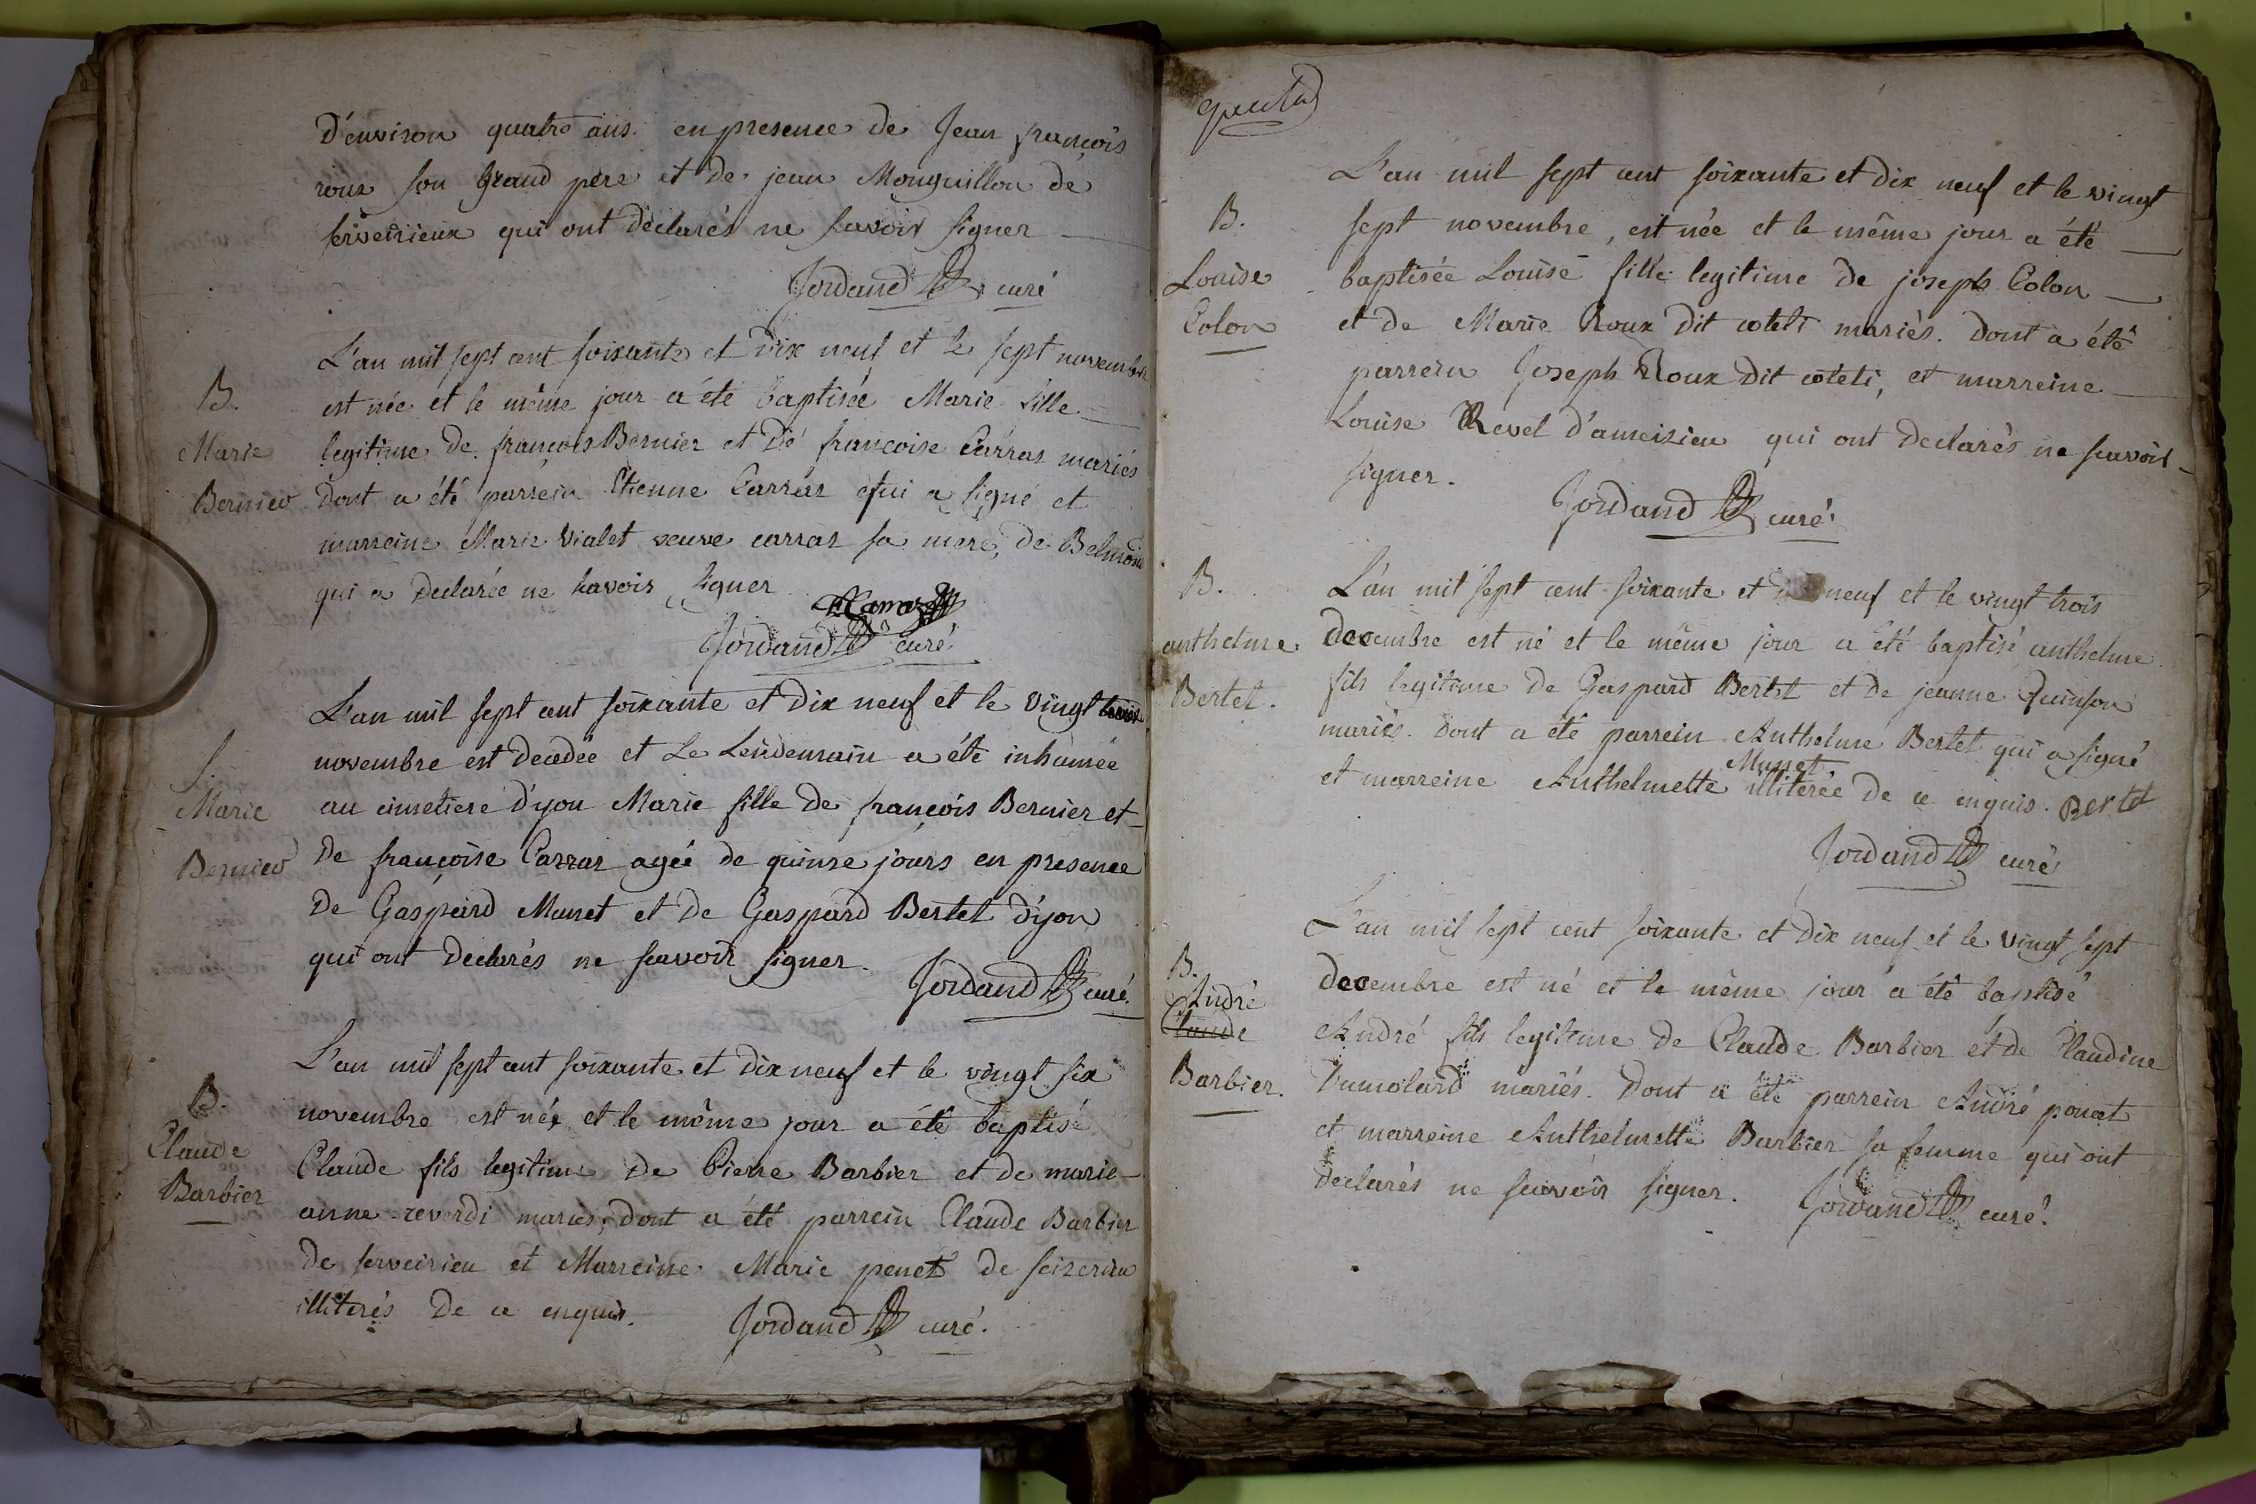 D'environ quatre ans. en presence de Jean françois
roux son Grand pere et de jean Monguillon de
serveirieux qui ont déclarés ne scavoir signer
Jordand curé
B.
Marie
Bernier
L'an mil sept cent soixante et dix neuf et le sept novembre
est née et le même jour a été baptisée Marie fille
legitime de françois Bernier et de francoise Carraz mariés
Dont a été parrein Etienne Carraz qui a signé et
marreine Marie Vialet veuve carraz sa mere, de Belmont
qui a declarée ne scavoir signer
Jordand curé
S.
Marie
Bernier
L'an mil sept cent soixante et dix neuf et le vingt
novembre est decedée et Le Lendemain a été inhumée
au cimetiere d'yon Marie fille de françois Bernier et
de françoise Carraz agée de quinse jours en presence
de Gaspard Munet et de Gaspard Bertet d'yon
qui ont declarés ne scavoir signer.
Jordand curé.
B.
Claude
Barbier
L'an mil sept cent soixante et dix neuf et le vingt six
novembre est née et le même jour a été baptisé
Claude fils legitime de Pierre Barbier et de marie
anne reverdi mariés, dont a été parrein Claude Barbier
de serveirieu et Marreine Marie penet de seizerieu
illiterés de ce enquis.
Jordand curé.
B.
Louise
Colon
L'an mil sept cent soixante et dix neuf et le vingt
sept novembre, est née et le même jour a été
baptisée Louise fille legitime de joseph Colon
et de Marie Roux dit coteti mariés. Dont a été
parrein Joseph Roux dit coteti, et marreine
Louise Revel d'ameizieu qui ont declarés ne scavoir
signer.
Jordand curé.
B.
anthelme
Bertet.
L'an mil sept cent soixante et neuf et le vingt trois
decembre est né et le même jour a été baptisé anthelme
fils legitime de Gaspard Bertet et de jeanne Quinson
mariés. dont a été parrein Anthelme Bertet qui a signé
Munet
et marreine Anthelmette illiterée de ce enquis. Bertet
Jordand curé
B.
André
Claude
Barbier.
L'an mil sept cent soixante et dix neuf et le vingt sept
decembre est né et le même jour a été baptisé
André fils legitime de Claude Barbier et de Claudine
Dumolard mariés. Dont a été parrein André ponet
et marreine Anthelmette Barbier sa femme qui ont
declarés ne scavoir signer. Jordand curé.